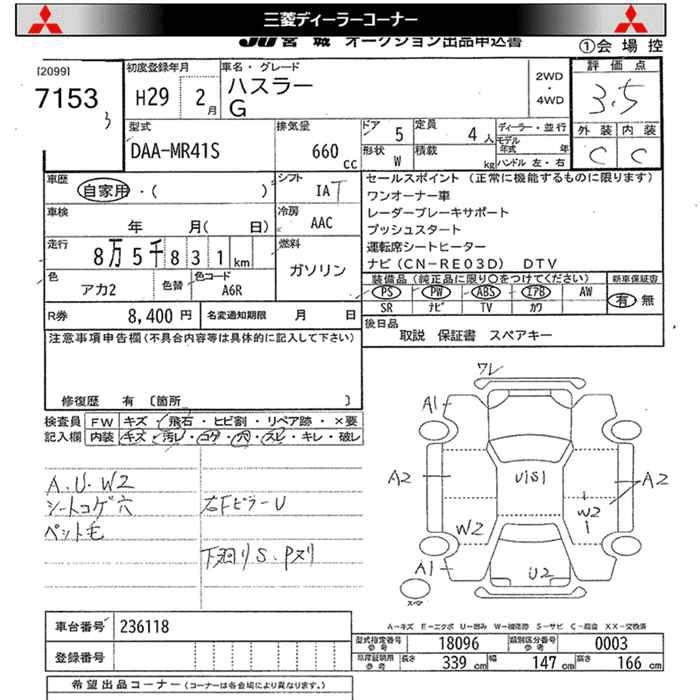 三菱ディーラーコーナー
JU宮城 オークション出品申込書
①会場控
[2099]
7153
3
初度登録年月
H29 2月
車名・グレード
ハスラー
G
2WD
・
4WD
評価点
3.5
型式
DAA-MR41S
排気量
660 cc
ドア 5
定員 4人
形状 W
積載 kg
ディーラー・並行
モデル年式 年
ハンドル 左・右
外装 内装
C C
車歴
自家用・( )
シフト
IAT
車検
年 月( 日)
冷房
AAC
走行
8万5千831km
燃料
ガソリン
色
アカ2
色替
色コード
A6R
R券 8,400円
名変通知期限 月 日
セールスポイント (正常に機能するものに限ります)
ワンオーナー車
レーダーブレーキサポート
プッシュスタート
運転席シートヒーター
ナビ(CN-RE03D) DTV
装備品(純正品に限り○をつけてください)
新車保証書
PS PW ABS エアB AW
SR ナビ TV カワ
有 無
後日品
取説 保証書 スペアキー
注意事項申告欄(不具合内容等は具体的に記入して下さい)
修復歴 有 〔箇所 〕
検査員記入欄
FW キズ・飛石・ヒビ割・リペア跡・×要
内装 キズ・汚レ・コゲ・穴・スレ・キレ・破レ
A.U.W2
シートコゲ穴
ペット毛
右Fピラー U
下廻りS.Pヌリ
ワレ
A1
A2
U1S1
A2
W2
W2
A1
U2
スペア
A-キズ E-エクボ U-凹み W-補修跡 S-サビ C-腐食 XX-交換済
車台番号 236118
登録番号
型式指定番号 参考 18096
類別区分番号 参考 0003
車庫証明用 参考 長さ 339cm 幅 147cm 高さ 166cm
希望出品コーナー (コーナーは各会場により異なります。)